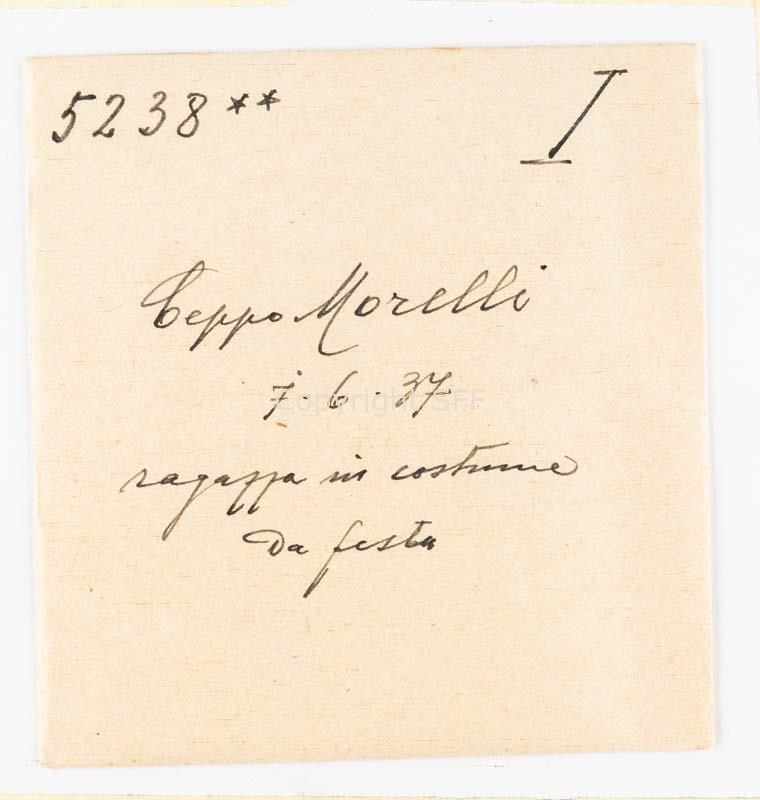 5238** I
Ceppo Morelli
7·6·37
Copyright SFF
ragazza in costume
Da festa